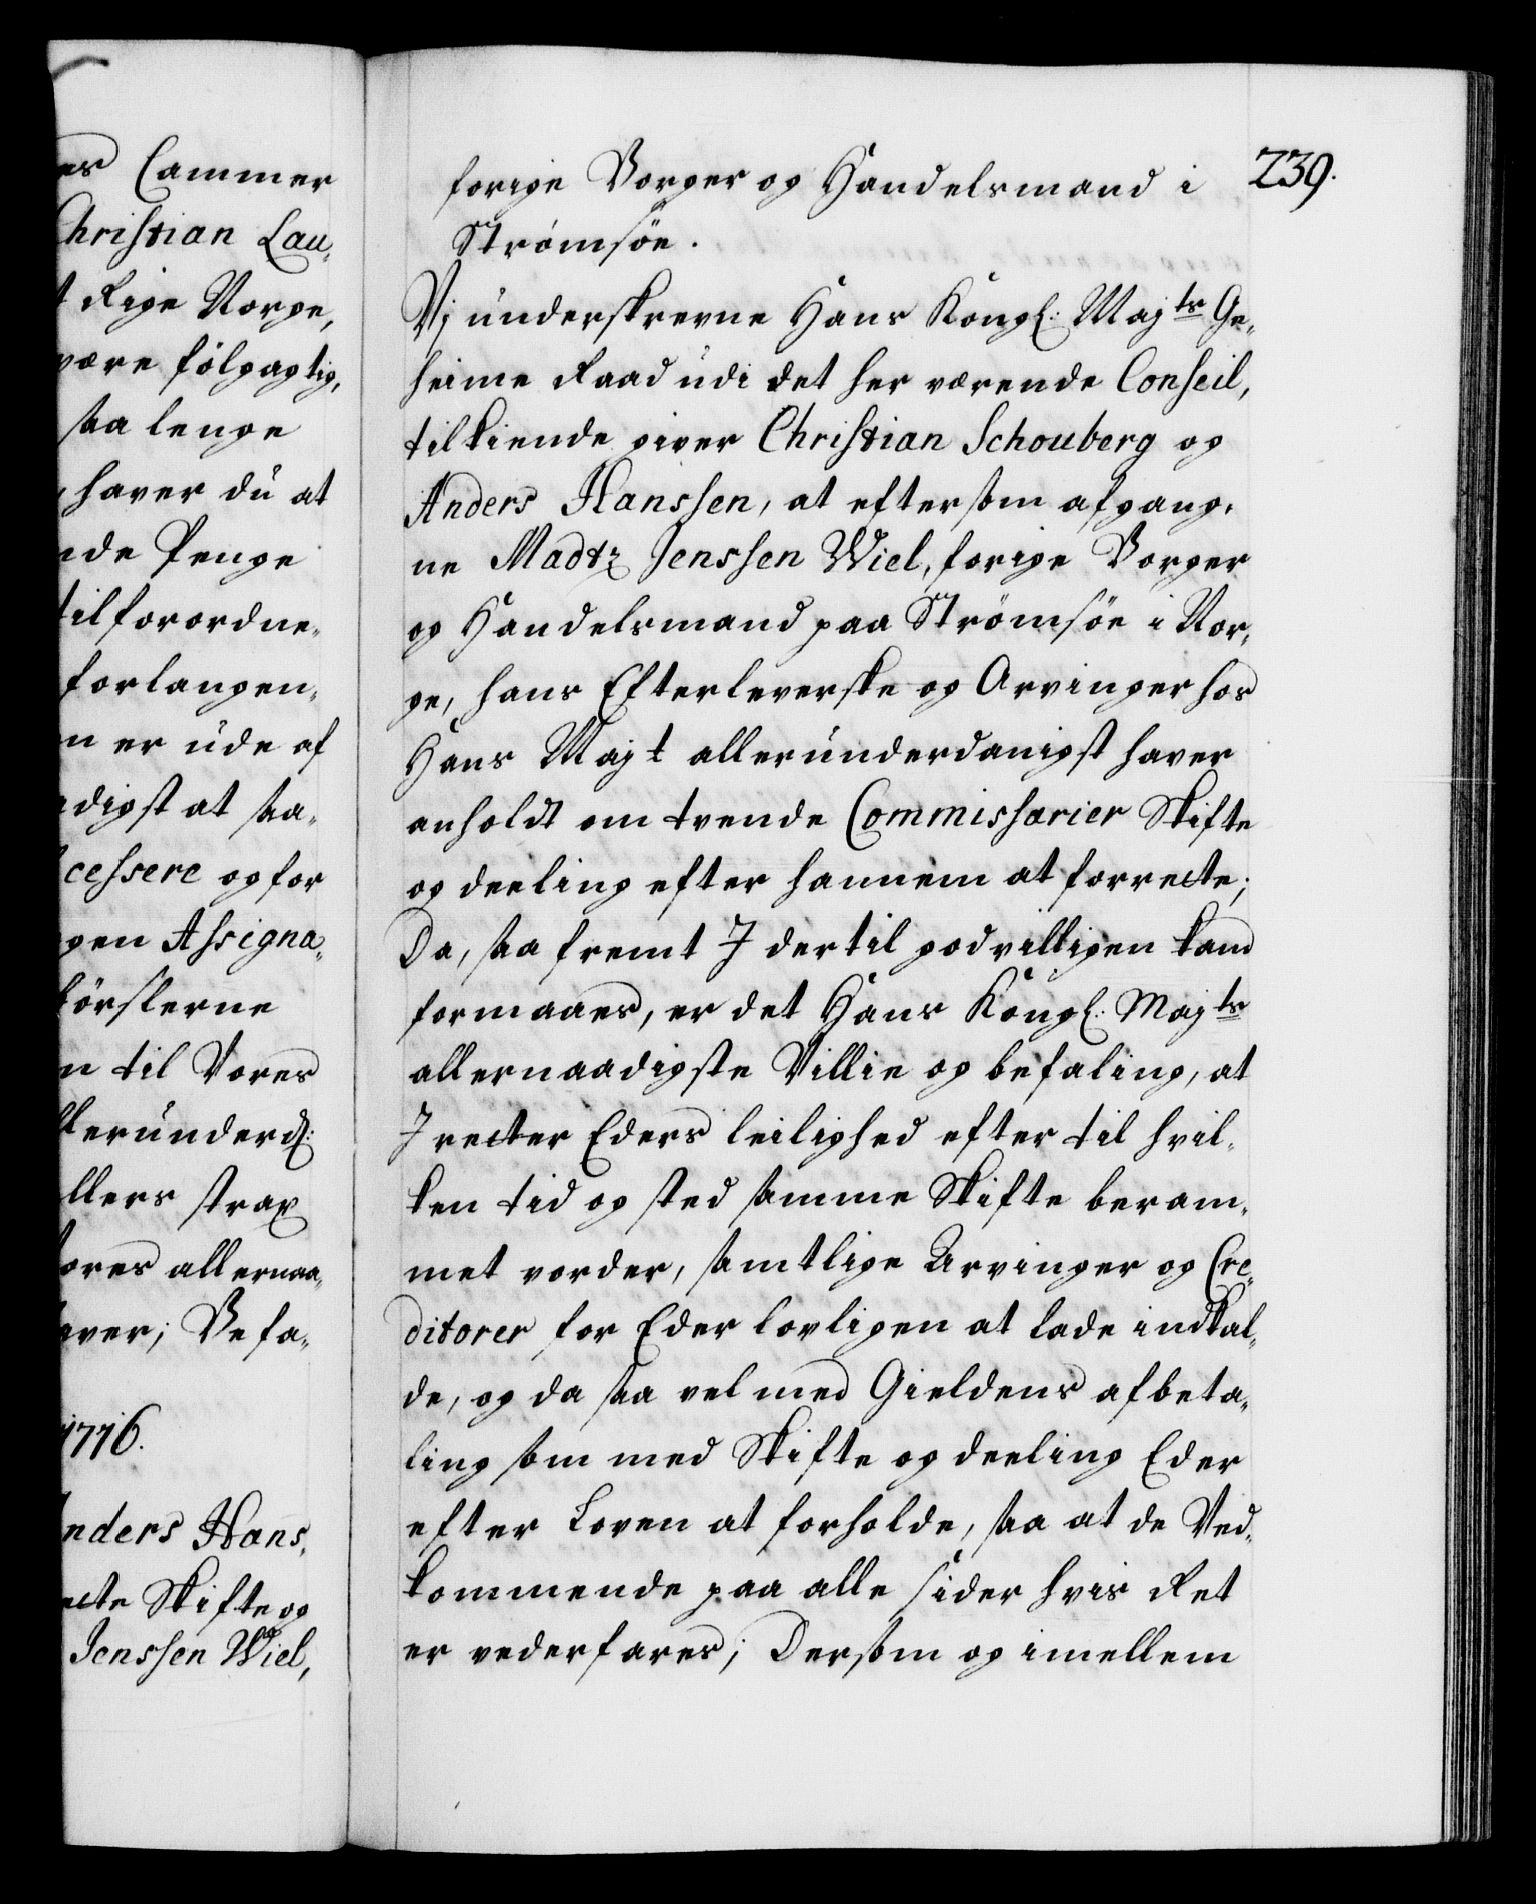 es Cammer
Christian Lau-
t Rige Norge,
være følgagtig,
saa lenge
haver du at
de Penge
tilforordne-
forlangen-
n er ude af
digst at saa-
cessere og for
gen Assigna-
førslerne
n til Vores
llerunderd:
llers strax
ores allernaa-
aver; Befa-
1716.
Anders Hans-
ecte Skifte og
Jenssen Wiel,
239.
forige Borger og Handelsmand i
Strømsöe.
Vj underskrevne Hans Kongl: Majts Ge-
heime Raad udi det her værende Conseil,
tilkiende giver Christian Schouberg og
Anders Hanssen, at eftersom afgang-
ne Madtz Jenssen Wiel, forige Borger
og Handelsmand paa Strömsöe i Nor-
ge, hans Efterleverske og Arvinger hos
Hans Majt allerunderdanigst haver
anholdt om tvende Commissarier Skifte
og deeling efter hannem at forrecte;
Da, saa fremt I dertil godvilligen kand
formaaes, er det Hans Kongl: Majts
allernaadigste Villie og befaling, at
I recter Eders leilighed efter til hvil-
ken tid og sted samme Skifte beram-
met vorder, samtlige Arvinger og Cre-
ditorer for Eder lovligen at lade indkal-
de, og da saa vel med Gieldens afbeta-
ling som med Skifte og deeling Eder
efter Loven at forholde, saa at de Ved-
kommende paa alle sider hvis Ret
er vederfares; Dersom og imellem